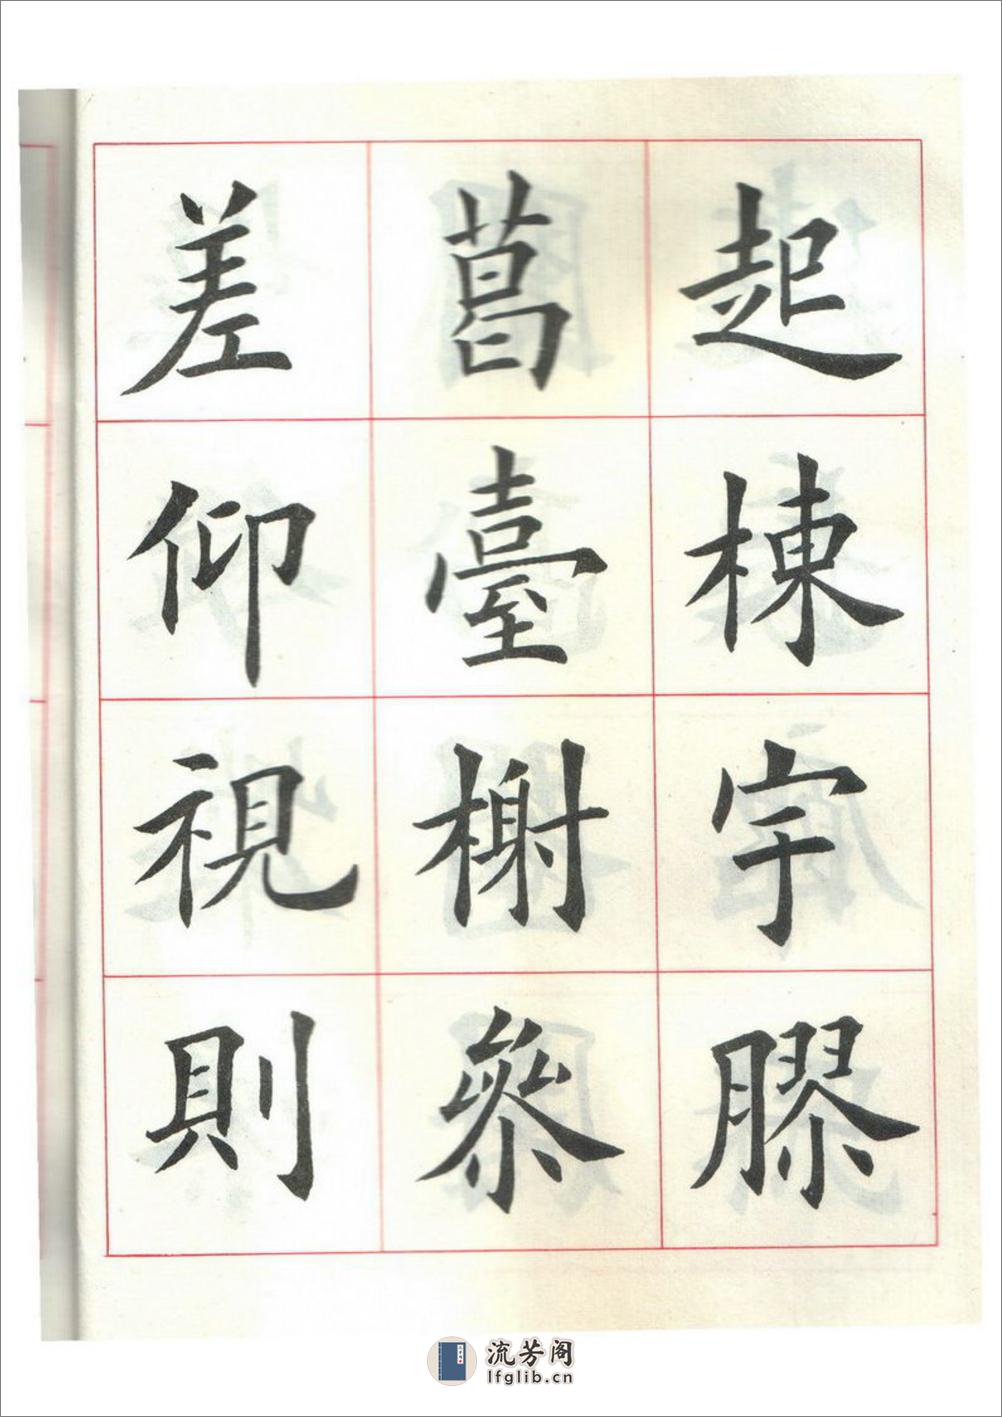 起棟宇膠
葛臺榭參
差仰視則
流芳阁
lfglib.cn